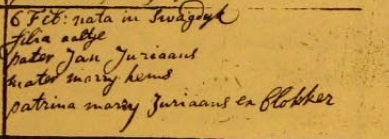 6 Feb: nata in Swagdyk
filia aaltje
pater Jan Juriaans
mater marry hems
patrina marry Juriaans ex blokker